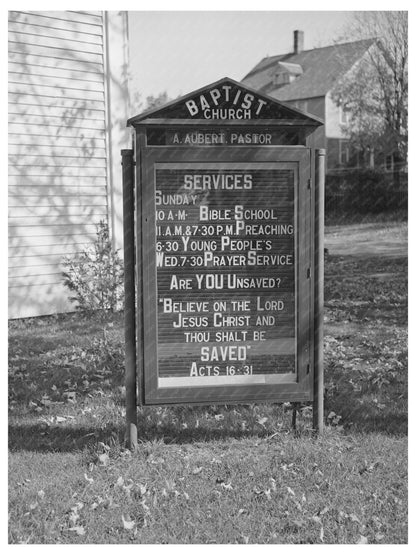 BAPTIST
CHURCH
A. AUBERT, PASTOR
SERVICES
SUNDAY
10 A-M- BIBLE SCHOOL
11 A.M.&7·30 P.M. PREACHING
6·30 YOUNG PEOPLE'S
WED. 7·30 PRAYER SERVICE
ARE YOU UNSAVED?
"BELIEVE ON THE LORD
JESUS CHRIST AND
THOU SHALT BE
SAVED"
ACTS 16-31